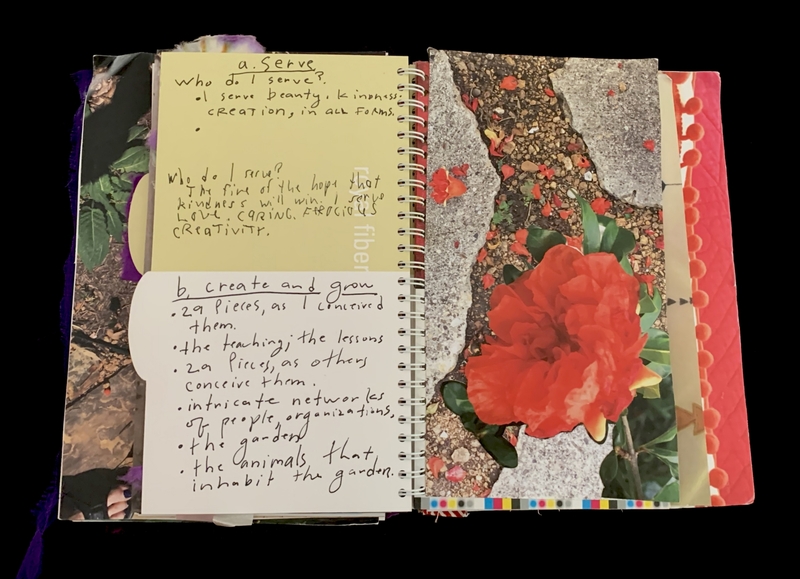 a. Serve
Who do I serve?
• I serve beauty. kindness.
CREATION, in ALL FORMS.
•
Who do I serve?
The fire of the hope that
kindness will win. I serve
LOVE. CARING. FEROCIOUS
CREATIVITY.
fiber
b. create and grow
• 29 Pieces, as I conceived
them.
• the teaching; the lessons
• 29 Pieces, as others
conceive them.
• intricate networks
of people, organizations,
• the garden
• the animals that
inhabit the garden.